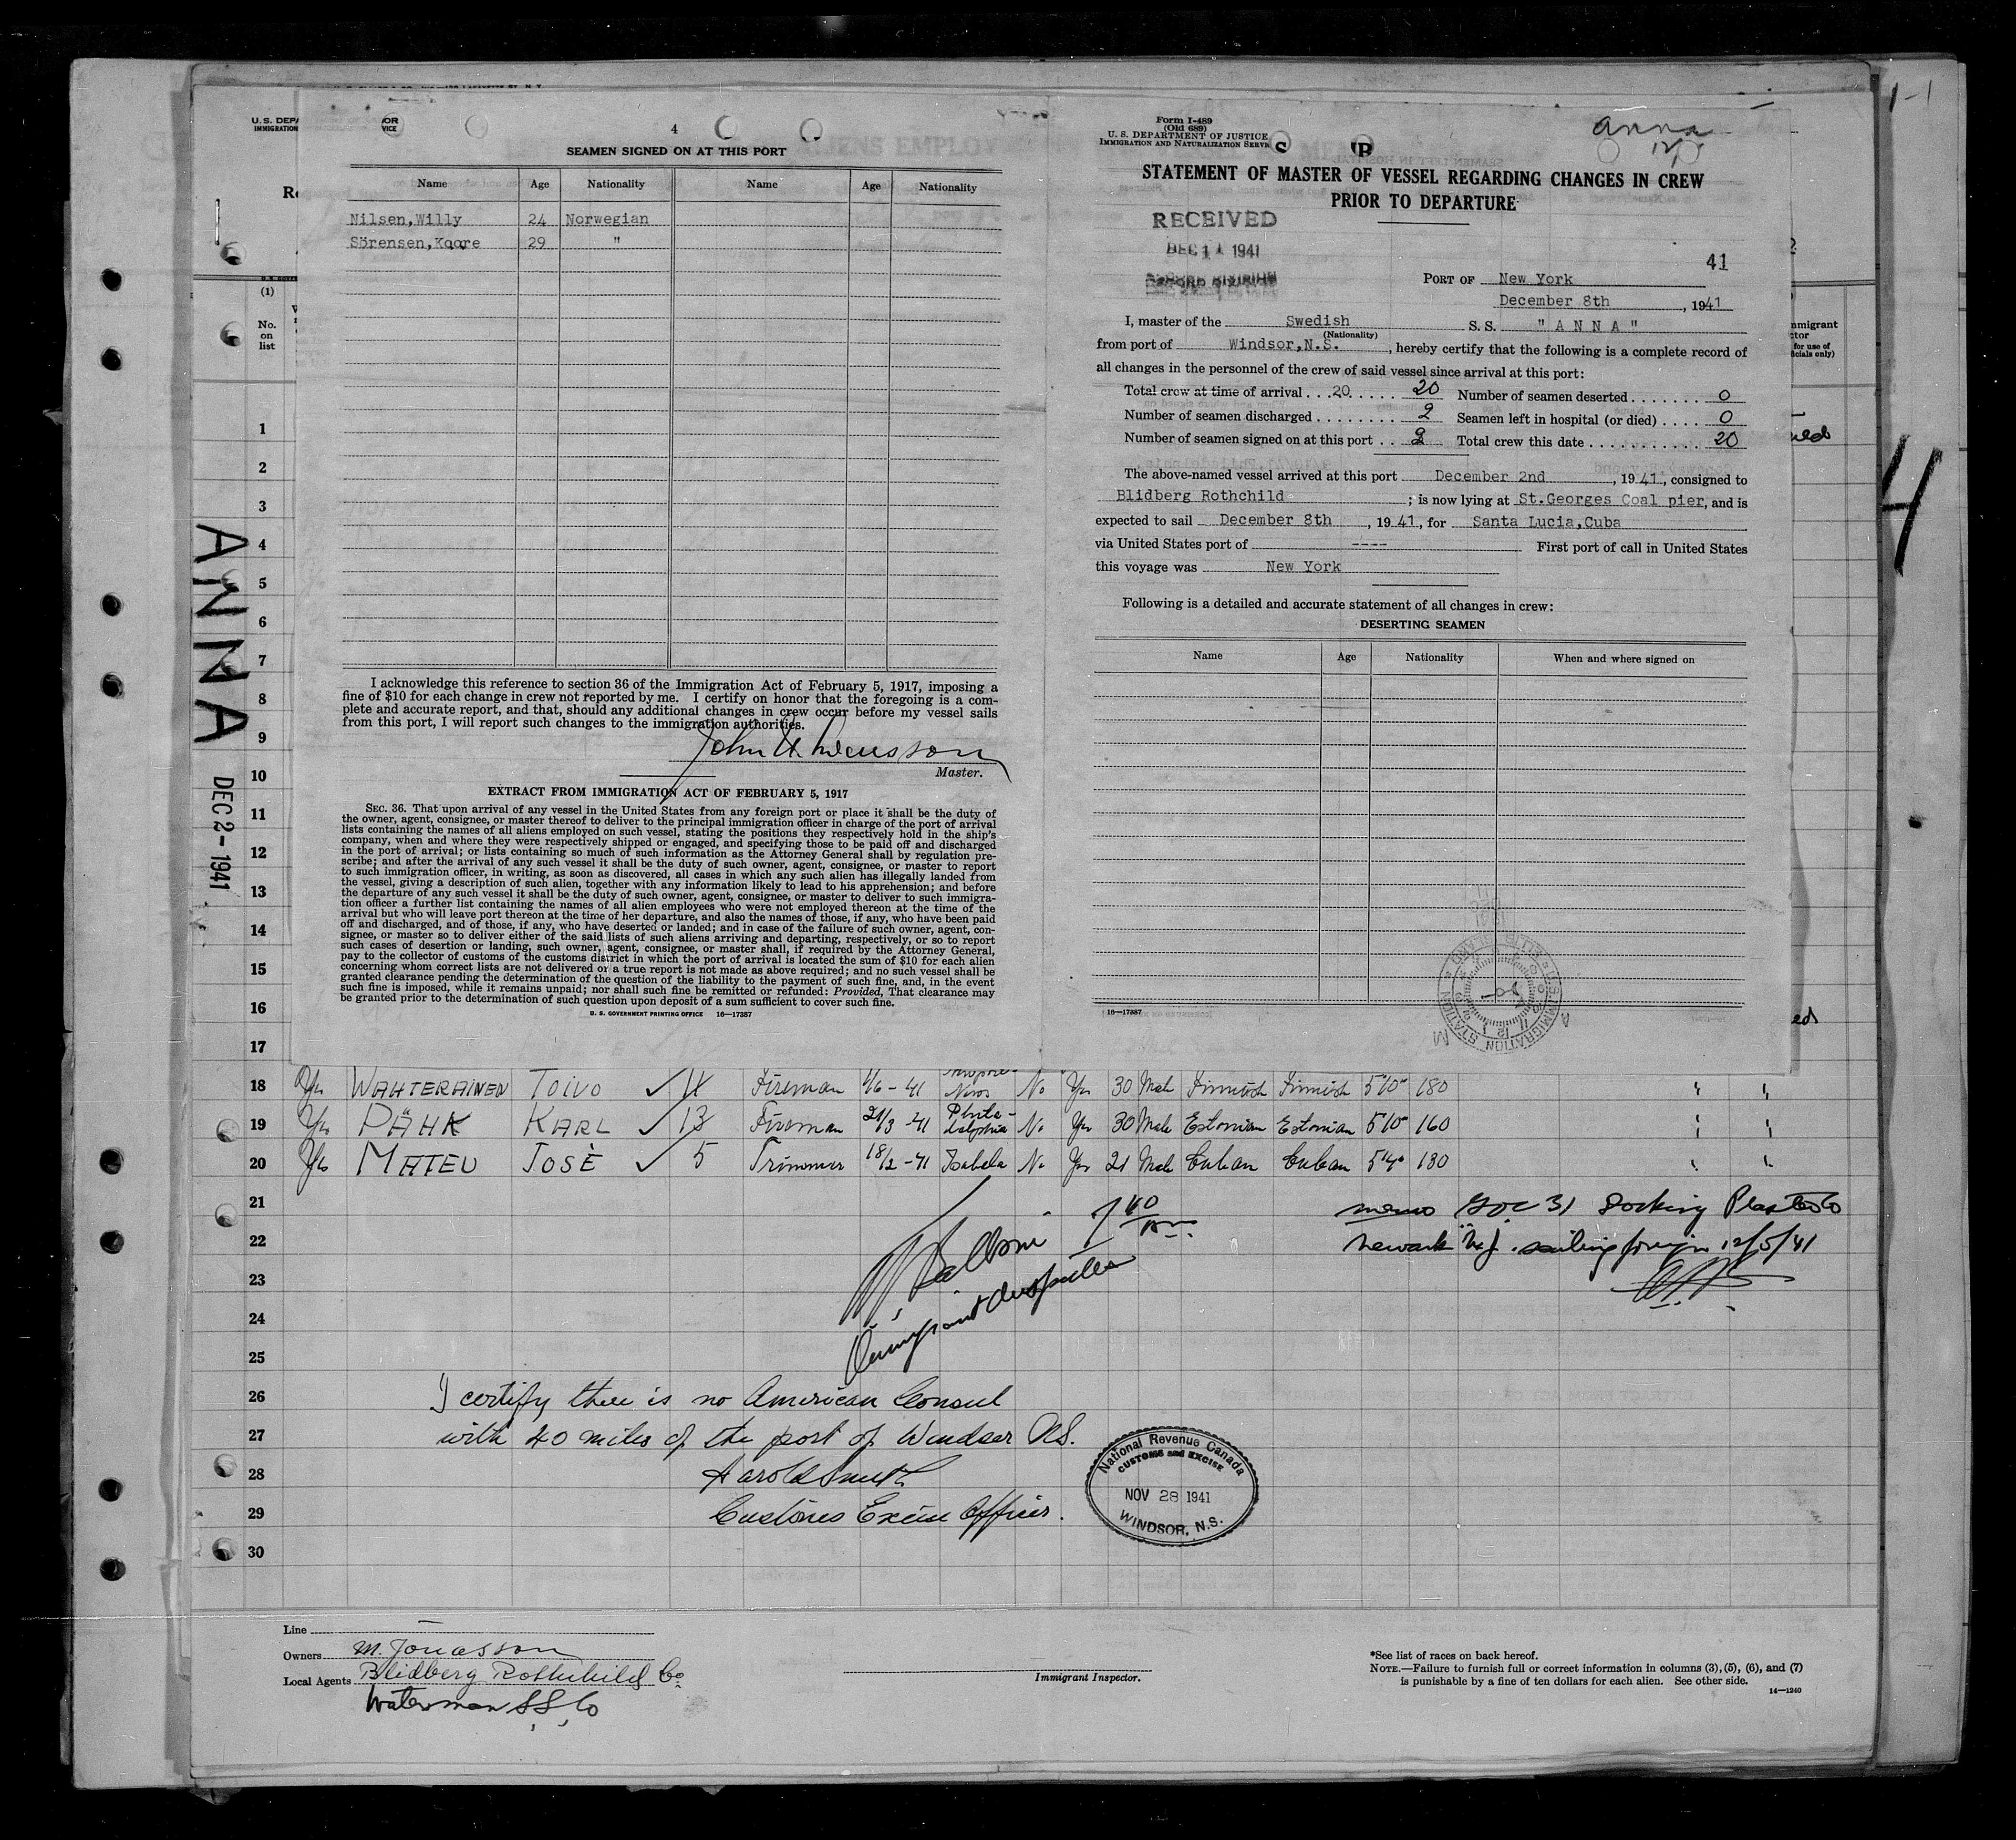 U.S. DEPA
OR
IMMIGRATION
VICE
4
SEAMEN SIGNED ON AT THIS PORT
Name Age Nationality Name Age Nationality
Nilsen,Willy 24 Norwegian
Sörensen,Kaare 29 "
I acknowledge this reference to section 36 of the Immigration Act of February 5, 1917, imposing a
fine of $10 for each change in crew not reported by me. I certify on honor that the foregoing is a com-
plete and accurate report, and that, should any additional changes in crew occur before my vessel sails
from this port, I will report such changes to the immigration authorities.
John
Master.
EXTRACT FROM IMMIGRATION ACT OF FEBRUARY 5, 1917
SEC. 36. That upon arrival of any vessel in the United States from any foreign port or place it shall be the duty of
the owner, agent, consignee, or master thereof to deliver to the principal immigration officer in charge of the port of arrival
lists containing the names of all aliens employed on such vessel, stating the positions they respectively hold in the ship's
company, when and where they were respectively shipped or engaged, and specifying those to be paid off and discharged
in the port of arrival; or lists containing so much of such information as the Attorney General shall by regulation pre-
scribe; and after the arrival of any such vessel it shall be the duty of such owner, agent, consignee, or master to report
to such immigration officer, in writing, as soon as discovered, all cases in which any such alien has illegally landed from
the vessel, giving a description of such alien, together with any information likely to lead to his apprehension; and before
the departure of any such vessel it shall be the duty of such owner, agent, consignee, or master to deliver to such immigra-
tion officer a further list containing the names of all alien employees who were not employed thereon at the time of the
arrival but who will leave port thereon at the time of her departure, and also the names of those, if any, who have been paid
off and discharged, and of those, if any, who have deserted or landed; and in case of the failure of such owner, agent, con-
signee, or master so to deliver either of the said lists of such aliens arriving and departing, respectively, or so to report
such cases of desertion or landing, such owner, agent, consignee, or master shall, if required by the Attorney General,
pay to the collector of customs of the customs district in which the port of arrival is located the sum of $10 for each alien
concerning whom correct lists are not delivered or a true report is not made as above required; and no such vessel shall be
granted clearance pending the determination of the question of the liability to the payment of such fine, and, in the event
such fine is imposed, while it remains unpaid; nor shall such fine be remitted or refunded: Provided, That clearance may
be granted prior to the determination of such question upon deposit of a sum sufficient to cover such fine.
U. S. GOVERNMENT PRINTING OFFICE 16—17387
Form I-489
(Old 689)
U. S. DEPARTMENT OF JUSTICE
IMMIGRATION AND NATURALIZATION SERV
Anna
STATEMENT OF MASTER OF VESSEL REGARDING CHANGES IN CREW
PRIOR TO DEPARTURE
RECEIVED
DEC 11 1941
RECORD DIVISION
41
PORT OF New York
December 8th, 1941
I, master of the Swedish S. S. "ANNA"
(Nationality)
from port of Windsor,N.S., hereby certify that the following is a complete record of
all changes in the personnel of the crew of said vessel since arrival at this port:
Total crew at time of arrival . . 20 . . . . . 20 Number of seamen deserted . . . . . . . 0
Number of seamen discharged . . . . . . . . 2 Seamen left in hospital (or died) . . . . 0
Number of seamen signed on at this port . . 2 Total crew this date . . . . . . . . . . . 20
The above-named vessel arrived at this port December 2nd, 1941, consigned to
Blidberg Rothchild ; is now lying at St.Georges Coal pier, and is
expected to sail December 8th, 1941, for Santa Lucia,Cuba
via United States port of ---- First port of call in United States
this voyage was New York
Following is a detailed and accurate statement of all changes in crew:
DESERTING SEAMEN
Name Age Nationality When and where signed on
16—17387
U.S. IMMIGRATION STATION
(1)
No.
on
list
1
2
3
4
5
6
7
8
9
10
11
12
13
14
15
16
17
ANNA
DEC 2 - 1941
4
18 Yes WAHTERAINEN TOIVO ✓ 11 Fireman 1/6 - 41 No Yes 30 Male Finnish Finnish 5'10" 180 " "
19 Yes PÄHK KARL ✓ 13 Fireman 21/3 -41 Phila-delphia No Yes 30 Male Estonian Estonian 5'10" 160 " "
20 Yes MATEU JOSÈ ✓ 5 Trimmer 18/2 -41 Isabela No Yes 21 Male Cuban Cuban 5'4" 130 " "
21
22
23
24
25
26
27
28
29
30
7 40 am
memo Docking
Newark N.J. sailing foreign 12/5/41
I certify there is no American Consul
with 40 miles of the port of Windsor NS.
Harold Smith
Customs Excise Officer.
National Revenue Canada
CUSTOMS and EXCISE
NOV 28 1941
WINDSOR, N.S.
Line
Owners M. Jonasson
Local Agents Blidberg Rothchild Co
Waterman SS Co
Immigrant Inspector.
*See list of races on back hereof.
NOTE.—Failure to furnish full or correct information in columns (3), (5), (6), and (7)
is punishable by a fine of ten dollars for each alien. See other side.
14—1240